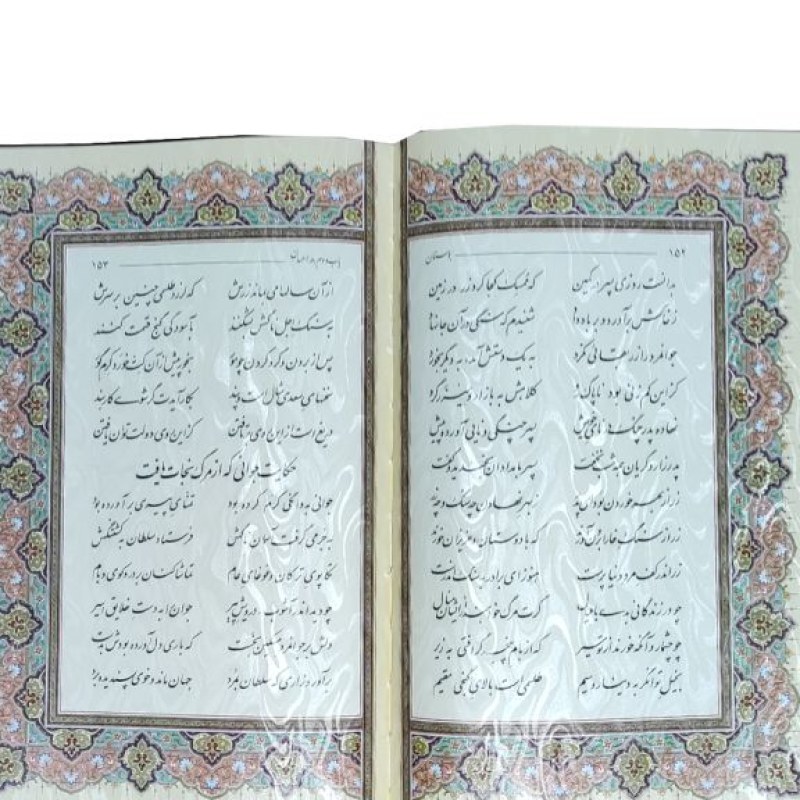 ۱۵۲ بوستان
بدانست روزی پسر در کمین که ممسک کجا کرد زر در زمین
ز خاکش برآورد و بر باد داد شنیدم که سنگی در آن جا نهاد
جوانمرد را زر بقائی نکرد به یک دستش آمد به دیگر بخورد
کزین کم زنی بود ناپاک رو کلاهش به بازار و میزر گرو
نهاده پدر چنگ در نای خویش پسر چنگی و نایی آورده پیش
پدر زار و گریان همه شب نخفت پسر بامدادان بخندید و گفت
زر از بهر خوردن بود ای پدر ز بهر نهادن چه سنگ و چه زر
زر از سنگ خارا برون آورند که با دوستان و عزیزان خورند
زر اندر کف مرد دنیا پرست هنوز ای برادر به سنگ اندرست
چو در زندگانی بدی با عیال گرت مرگ خواهند از ایشان منال
چو چشمارو آنگه خورند از تو سیر که از بام پنجه گز افتی به زیر
بخیل توانگر به دینار و سیم طلسمی است بالای گنجی مقیم
باب دوم در احسان ۱۵۳
از آن سالها می بماند زرش که لرزد طلسمی چنین بر سرش
به سنگ اجل ناگهش بشکنند به آسودگی گنج قسمت کنند
پس از بردن و گرد کردن چو مور بخور پیش از آن کت خورد کرم گور
سخنهای سعدی مثال است و پند بکار آیدت گر شوی کاربند
دریغ است از این روی برتافتن کزاین روی دولت توان یافتن
حکایت جوانی که از مرگ نجات یافت
جوانی به دانگی کرم کرده بود تمنای پیری بر آورده بود
به جرمی گرفت آسمان ناگهش فرستاد سلطان به کشتنگهش
تکاپوی ترکان و غوغای عام تماشاکنان بر در و کوی و بام
چو دید اندر آشوب درویش پیر جوان را به دست خلایق اسیر
دلش بر جوانمرد مسکین بخست که باری دل آورده بودش بدست
برآورد زاری که سلطان بمرد جهان ماند و خوی پسندیده برد